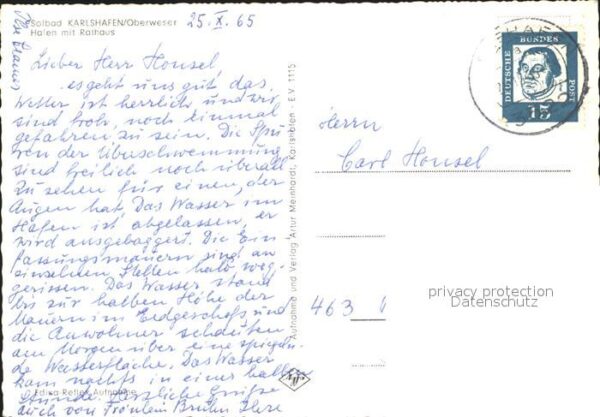 Solbad KARLSHAFEN/Oberweser
Hafen mit Rathaus
25. X. 65
Lieber Herr Honsel,
es geht uns gut, das
Wetter ist herrlich und wir
sind froh, noch einmal
gefahren zu sein. Die Spu-
ren der Überschwemmung
sind freilich noch überall
zu sehen für einen, der
Augen hat. Das Wasser im
Hafen ist abgelassen, er
wird ausgebaggert. Die Ein
fassungsmauern sind an
einzelnen Stellen halb weg-
gerissen. Das Wasser stand
bis zur halben Höhe der
Mauern im Erdgeschoß und
die Anwohner schauten
am Morgen über eine spiegeln-
de Wasserfläche. Das Wasser
kam nachts in einer halben
Stunde. Herzliche Grüße
auch von Fräulein Bruhn Ihre
© Edira Reflex Aufnahme
Aufnahme und Verlag Artur Meinhardt, Karlshafen · E.V. 1115
DEUTSCHE BUNDES POST
15
Herrn
Carl Honsel
463
privacy protection
Datenschutz
Agfa